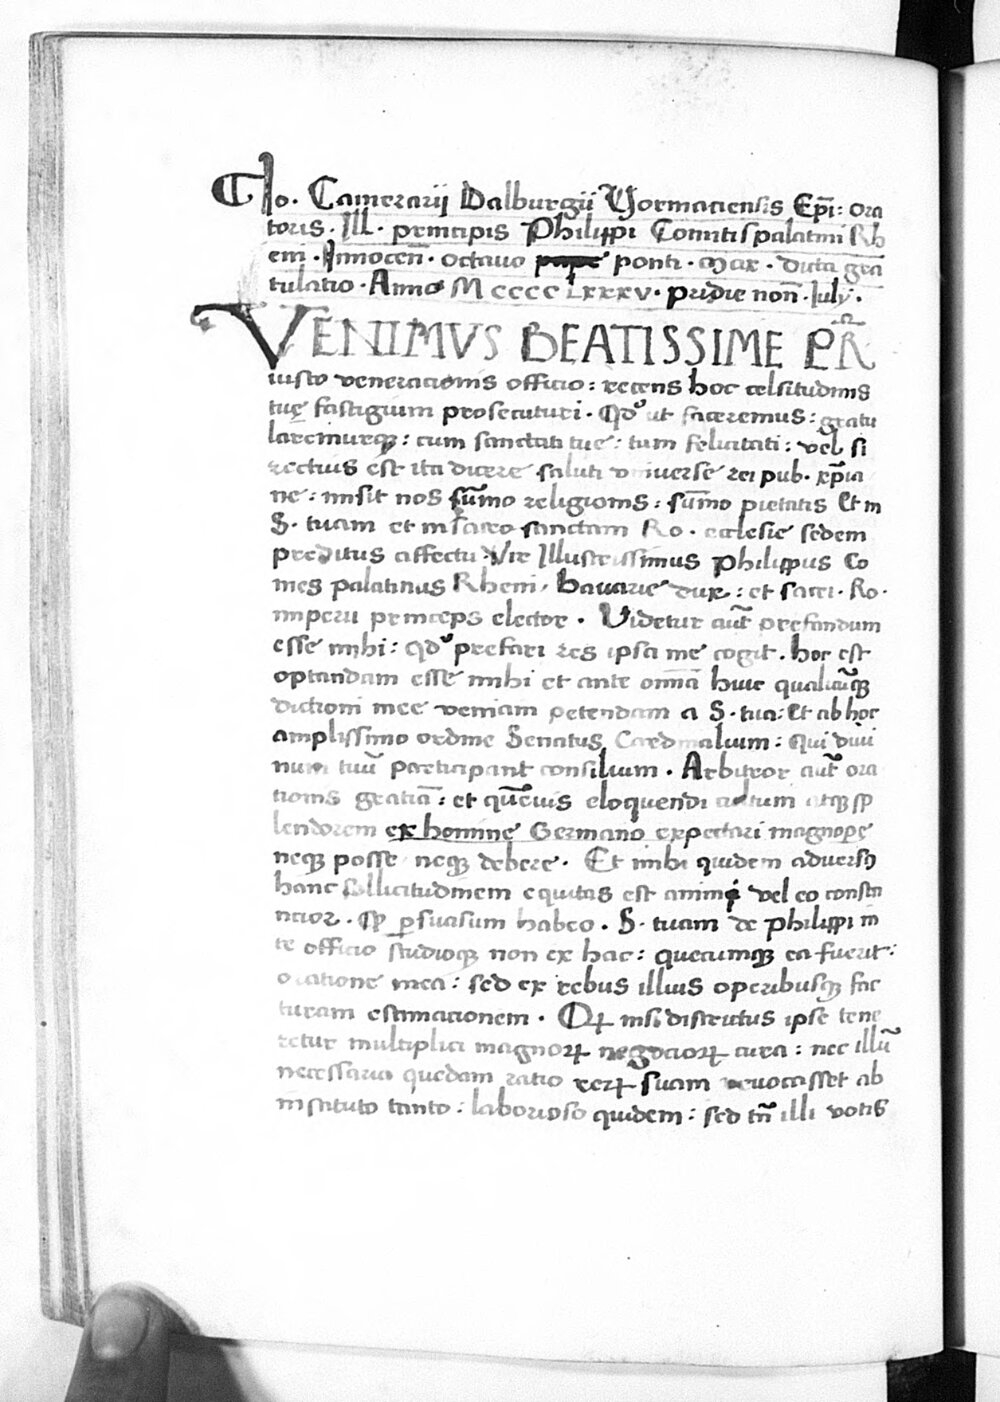 Io. Camerarij Dalburgij Vormaciensis Ep̄i: ora
toris. Ill. principis Philippi Comitis palatini Rh
eni. Innocen̄. octavo pape ponti. Max. dicta gra
tulatio. Anno MCCCCLXXXV. pridie non̄. Iuly.
VENIMUS BEATISSIME PR̄
iusto veneracionis officio: recens hoc celsitudinis
tuę fastigium prosecuturi. Qd' ut faceremus: gratu
laremurqꝫ: cum sanctitati tue: tum felicitati: vel si
rectius est ita dicere saluti universe rei pub. xp̄ia
ne: misit nos sūmo religionis: sūmo pietatis et in
S. tuam et in sacro sanctam Ro. ecclesie sedem
preditus affectu Vir Illustrissimus Philippus Co
mes palatinus Rheni, Bavarie dux: et sacri. Ro.
imperii princeps elector. Videtur aut̄ prefandum
esse mihi: qd' prefari res ipsa me cogit. hoc est
optandam esse mihi et ante omn̄ia huic qualicūqꝫ
dictioni mee veniam petendam a S. tua: Et ab hoc
amplissimo ordine Senatus Cardinalium: Qui divi
num tuū participant consilium. Arbitror aut̄ ora
tionis gratiā: et quēvis eloquendi cultum atqꝫ sp
lendorem ex homine Germano expectari magnope
neqꝫ posse neqꝫ debere. Et mihi quidem adversꝫ
hanc sollicitudinem equitas est animi vel eo consta
ncior. Qꝫ p̱suasum habeo. S. tuam de Philippi in
te officio studioqꝫ non ex hac: quecumqꝫ ea fuerit:
oratione mea: sed ex rebus illius operibusqꝫ fac
turam estimacionem. Qꝫ nisi districtus ipse tene
retur multiplici magnoꝝ negocioꝝ cura: nec illū
necessaria quedam ratio reꝝ suam revocasset ab
instituto tanto: laborioso quidem: sed tn̄ illi votis